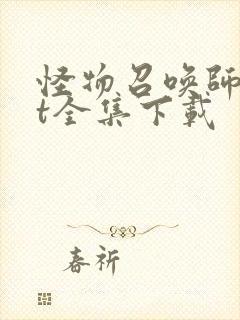 怪物召唤師
t全集下载
春祈